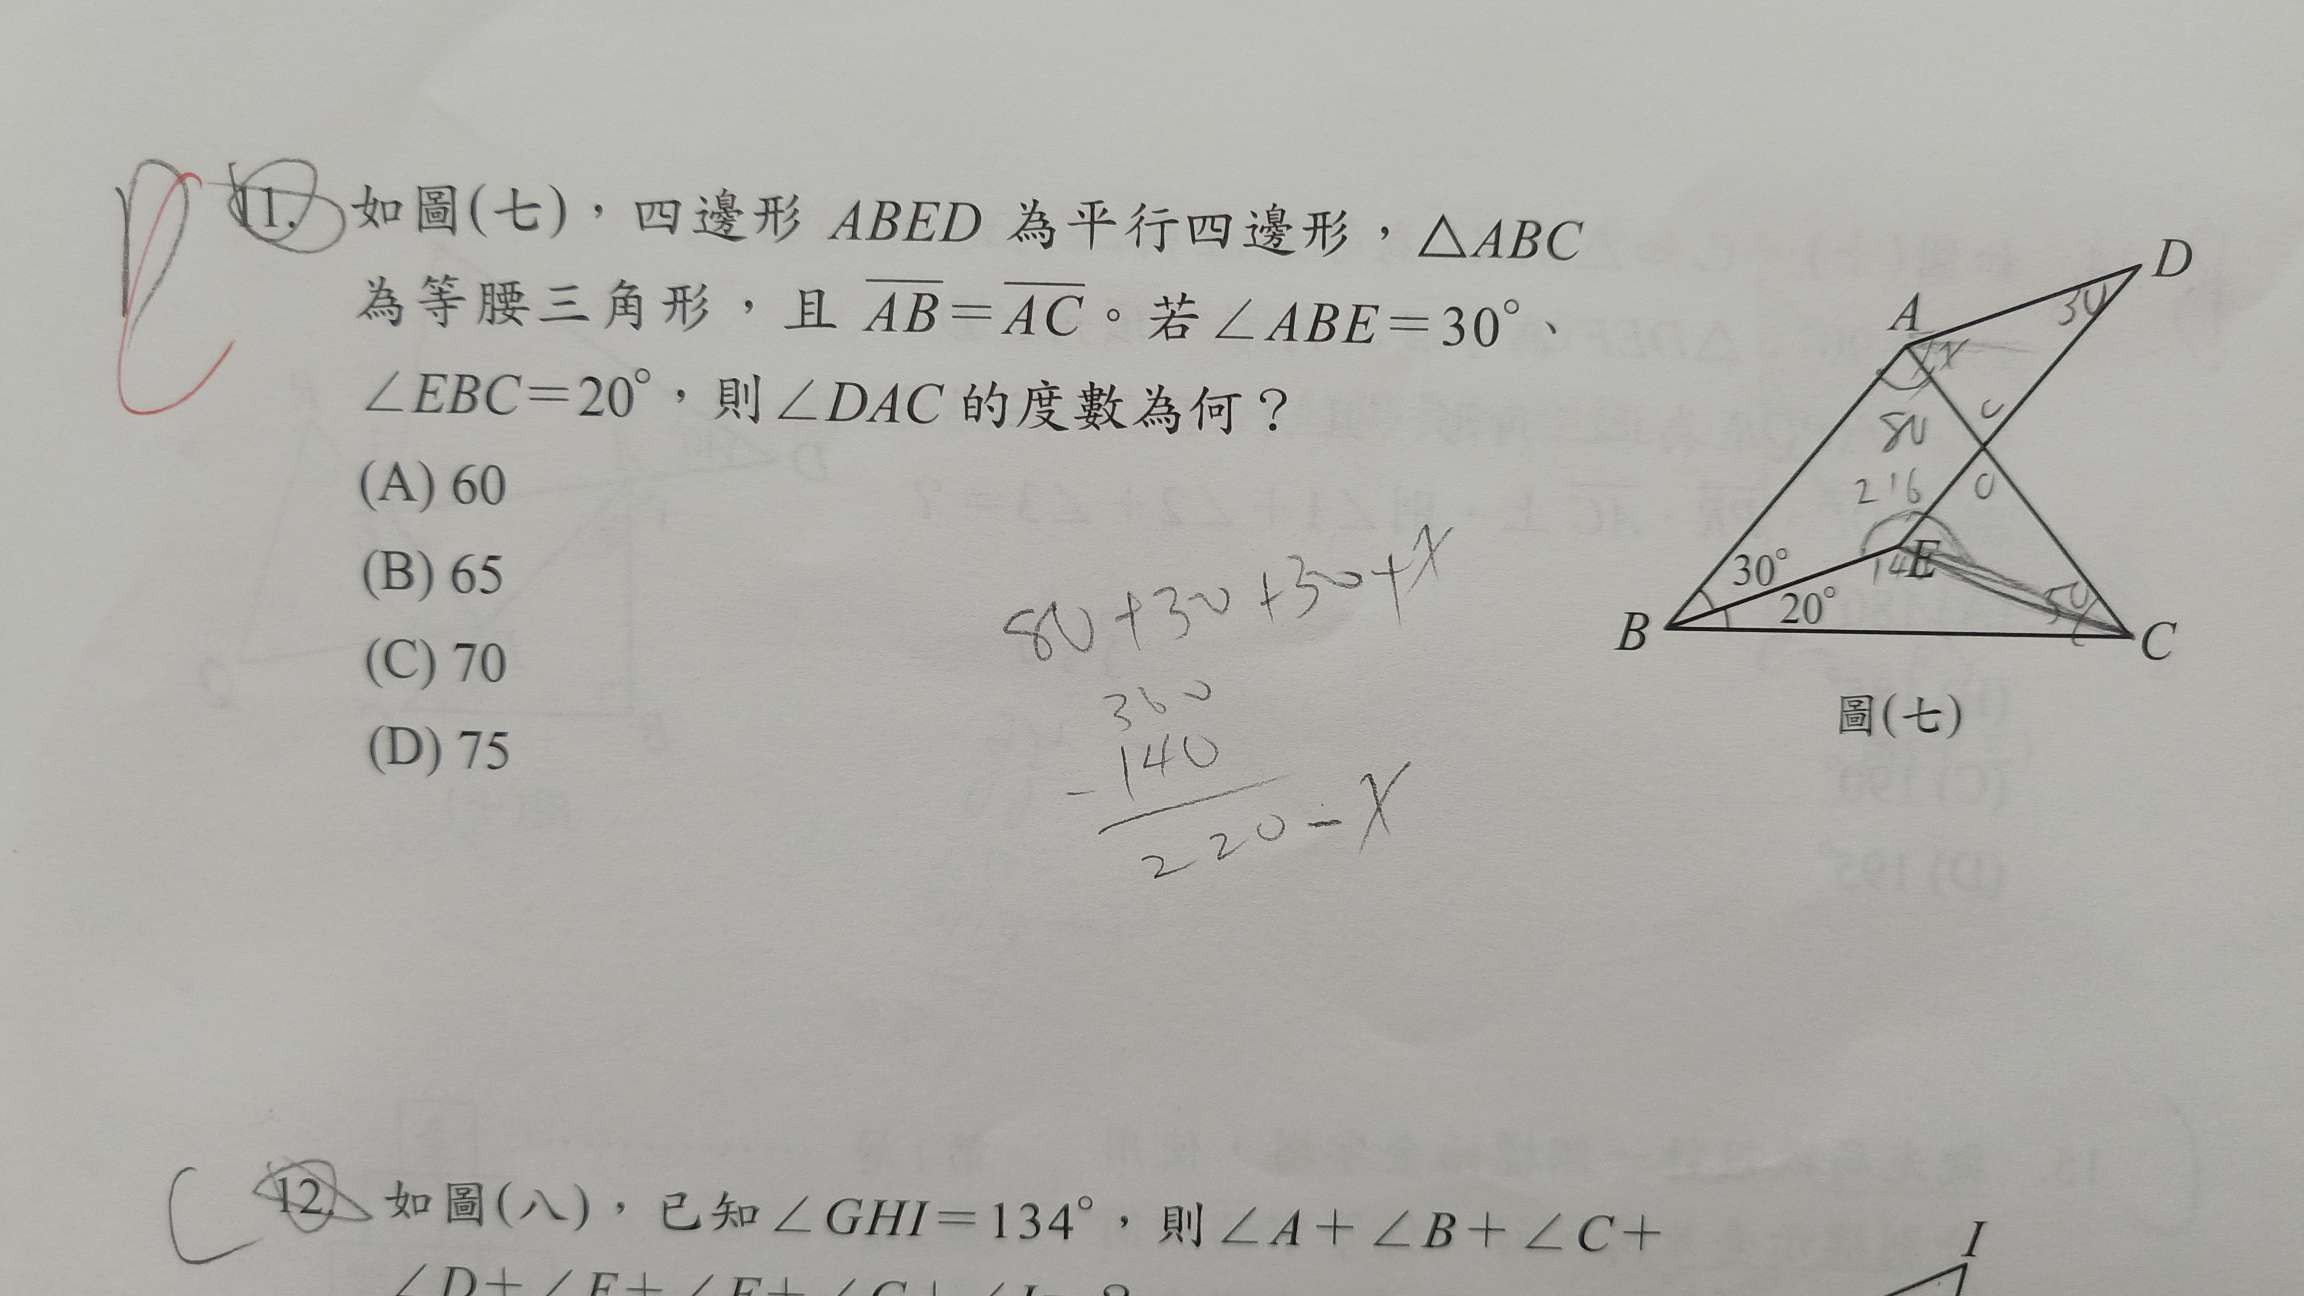 11. 如圖(七)，四邊形 ABED 為平行四邊形，△ABC
為等腰三角形，且 AB＝AC。若∠ABE＝30°、
∠EBC＝20°，則∠DAC 的度數為何？
(A) 60
(B) 65
(C) 70
(D) 75
80+30+30+X
360
-140
220-X
D
30
A
X
80
216
E
30°
20°
50
B
C
圖(七)
12. 如圖(八)，已知∠GHI＝134°，則∠A＋∠B＋∠C＋
I